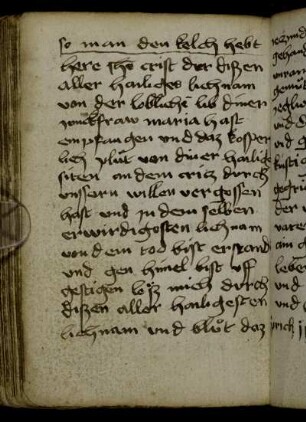 so man den kelch hebt
here jhu crist der dißen
aller hailiges lichnam
von der loblichē lib diner
junckfraw maria hast
empfangen und daz kosper
lich plůt von diner hailige
siten an dem critz durch
unssern willen vergossen
hast und in dem selben
erwirdigosten lichnam
von dem tod bist erstand
und gen himel bist uff
gestigen löß mich durch
dißen aller hailigesten
lichnam und blůt daz